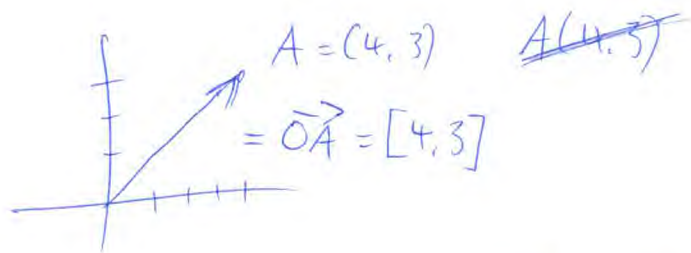 A = (4, 3) A(4, 3)
= \vec{OA} = [4, 3]